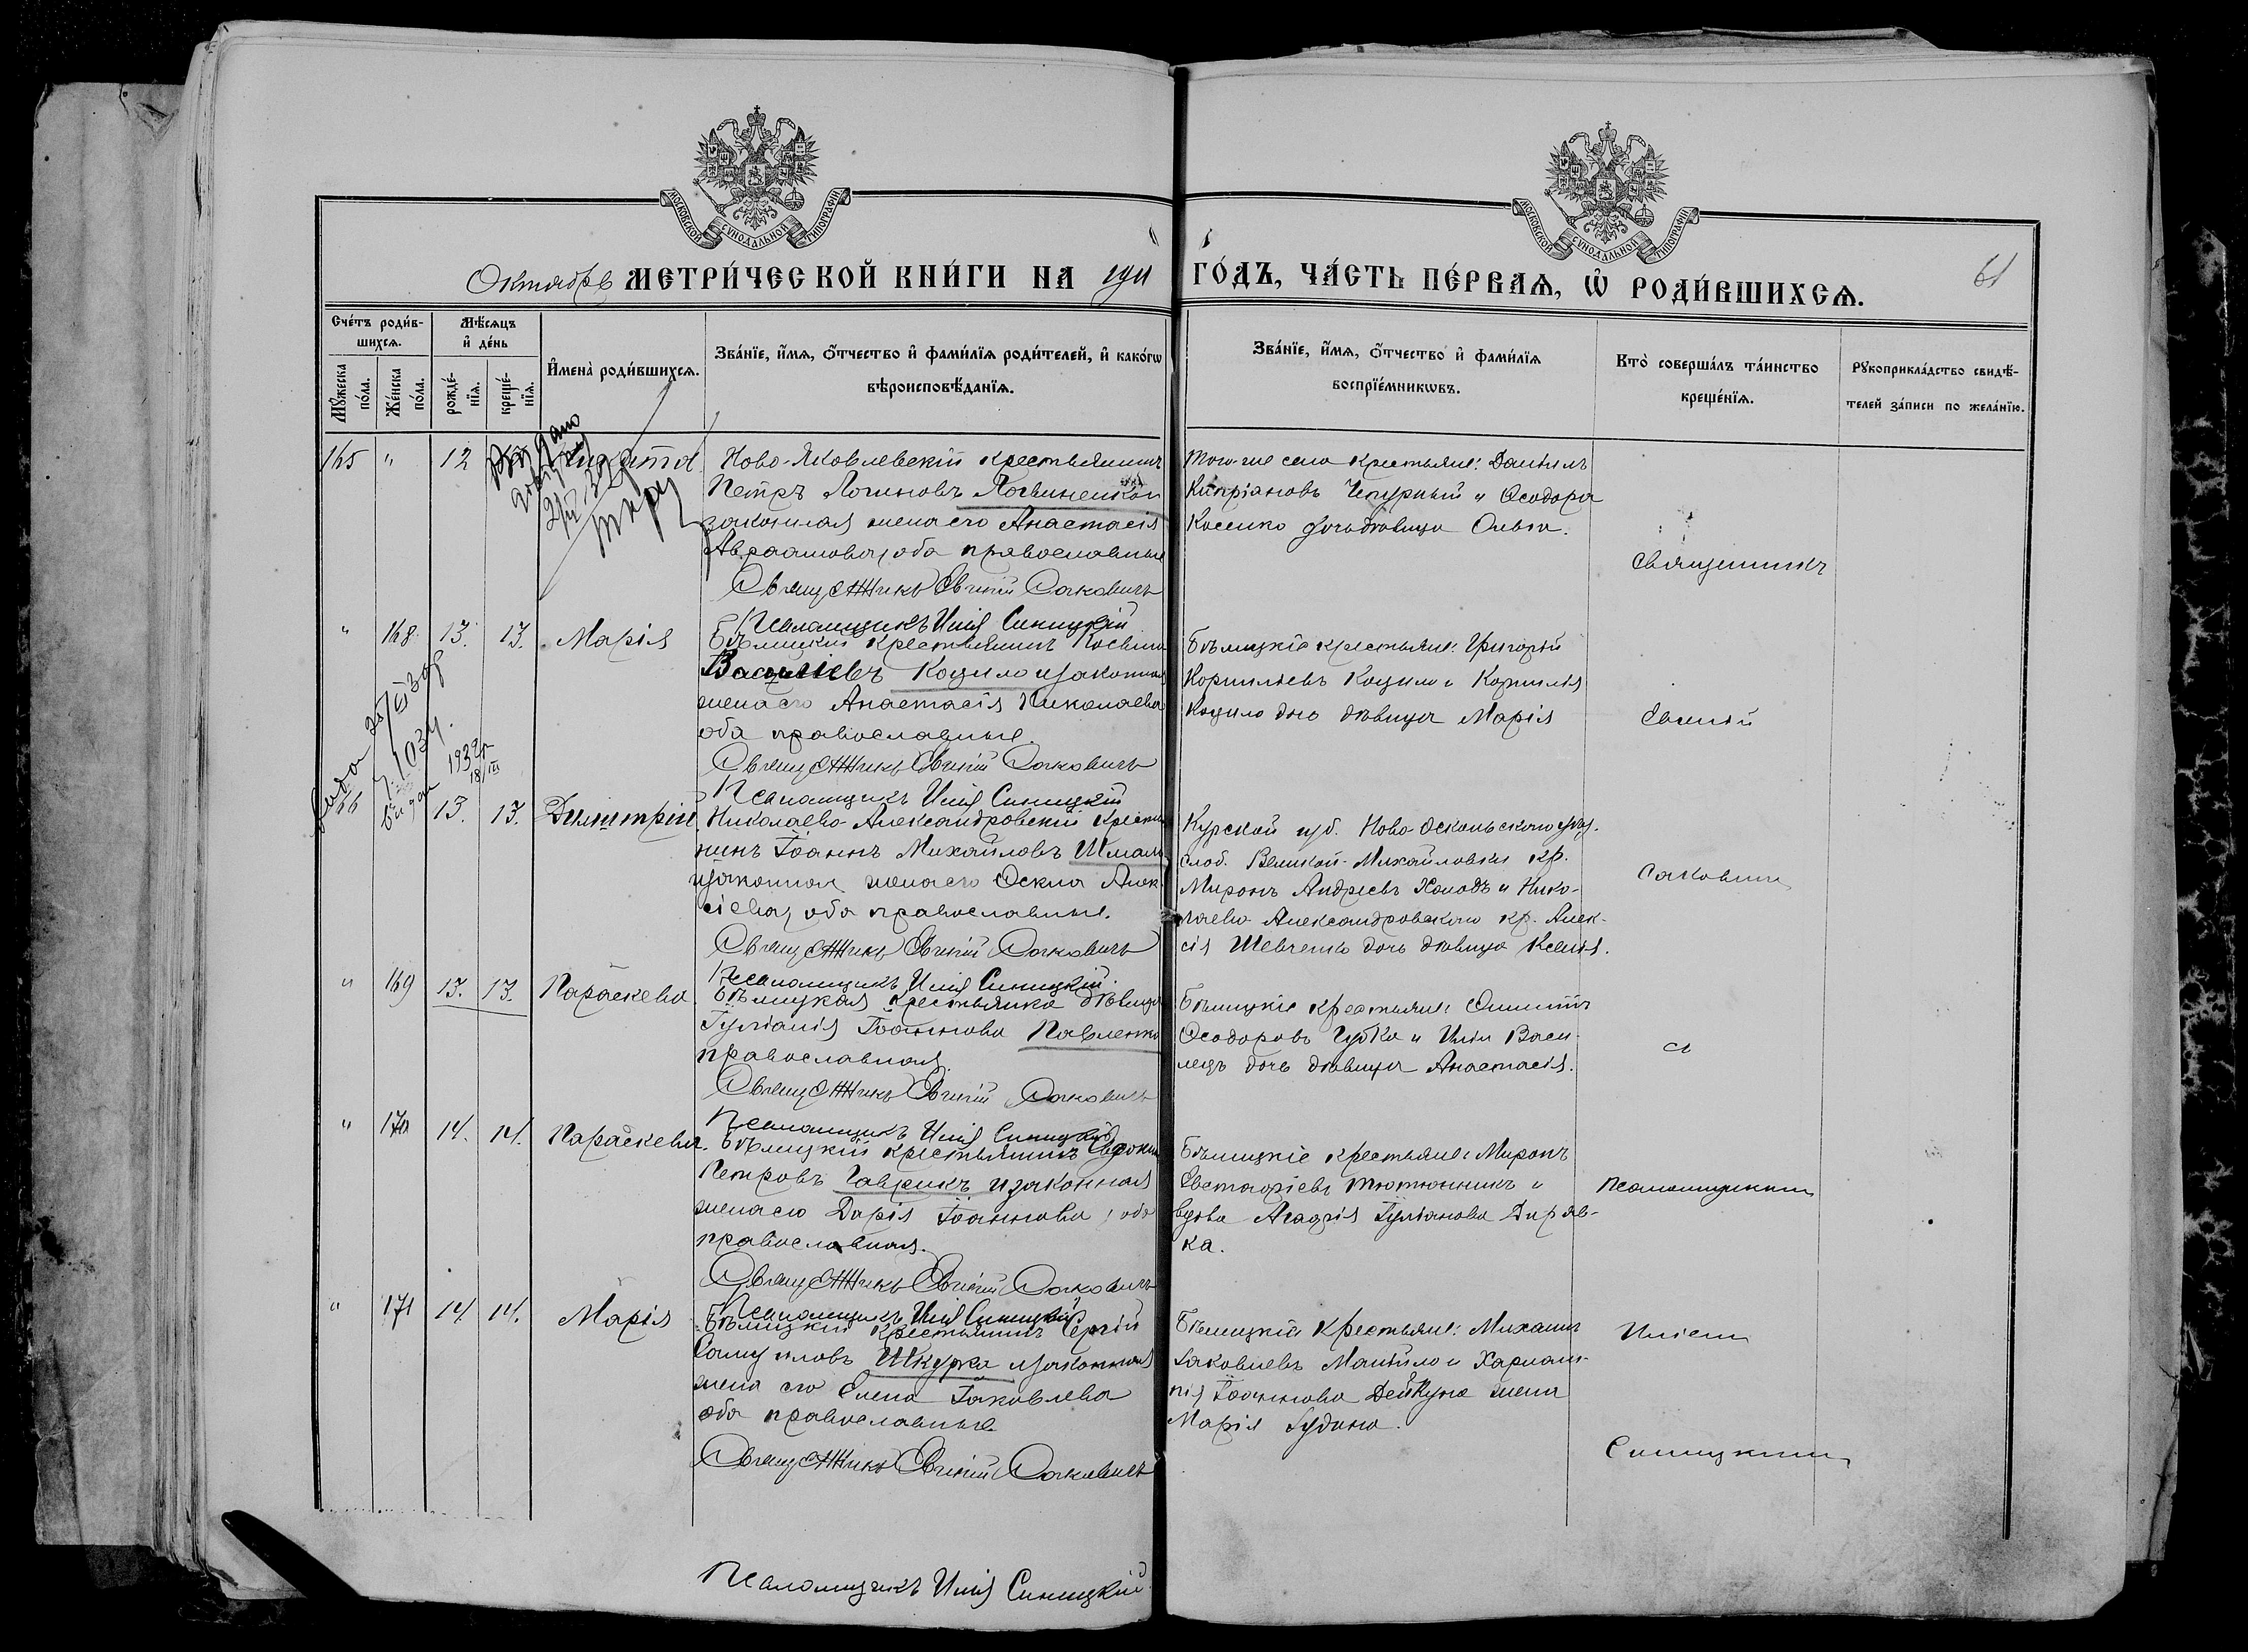 МОСКОВСКОЙ СУНОДАЛЬНОЙ ТИПОГРАФІИ
МОСКОВСКОЙ СУНОДАЛЬНОЙ ТИПОГРАФІИ
Октябрь МЕТРИ́ЧЕСКОЙ КНИ́ГИ НА 1911 ГО́ДЪ, ЧА́СТЬ ПЕ́РВАѦ, Ѡ҆ РОДИ́ВШИХСѦ.
61
Сче́тъ роди́в-
шихсѧ.
Мѣ́сѧцъ
и҆ де́нь
И҆мена̀ роди́вшихсѧ.
Зва́нїе, и҆́мѧ, ѻ҆́тчество и҆ фами́лїѧ роди́телей, и҆ како́гѡ
вѣроисповѣ́данїѧ.
Зва́нїе, и҆́мѧ, ѻ҆́тчество и҆ фами́лїѧ
воспрїе́мникѡвъ.
Кто̀ соверша́лъ та́инство
креще́нїѧ.
Рꙋкоприкла́дство свидѣ́-
телей за́писи по жела́нїю.
Мꙋ́жеска
по́ла.
Же́нска
по́ла.
рожде́-
нїѧ.
креще́-
нїѧ.
165 " 12
Ново-Яковлевскій крестьянинъ
Петръ Логиновъ
законная жена его Анастасія
Авраамова, оба православные
Священникъ Евгеній Саковичъ
Псаломщикъ Илія Синицкій
того-же села крестьяне: Даніилъ
Кипріановъ Чепурный и Ѳеодора
Косенко дочь дѣвица Ольга.
Священникъ
" 168 13. 13. Марія
Бѣлицкій крестьянинъ Косьма
Васильевъ Коцило и законная
жена его Анастасія Николаева
оба православные.
Священникъ Евгеній Саковичъ
Псаломщикъ Илія Синицкій
Бѣлицкіе крестьяне: Григорій
Корниліевъ Коцило и Корнилія
Коцило дочь дѣвица Марія
Евгеній
1034.
1932р
18/III
166 13. 13. Димитрій
Николаево-Александровскій крестья
нинъ Іоаннъ Михайловъ
и законная жена его Ѳекла Алек
сіева, оба православные.
Священникъ Евгеній Саковичъ
Псаломщикъ Илія Синицкій
Курской губ. Ново-Оскольского уѣзд.
слоб. Великой-Михайловки кр.
Миронъ Андреевъ Холодъ и Нико-
лаево-Александровского кр. Алек-
сія Шевченко дочь дѣвица Ксенія.
Саковичъ
" 169 13. 13. Параскева
Бѣлицкая крестьянка дѣвица
Іуліанія Іоаннова Павленко
православная.
Священникъ Евгеній Саковичъ
Псаломщикъ Илія Синицкій
Бѣлицкіе крестьяне:
Ѳеодоровъ Губка и Иліи Васи-
лецъ дочь дѣвица Анастасія.
съ
" 170 14. 14. Параскева.
Бѣлицкій крестьянинъ Евдокимъ
Петровъ Гаврикъ и законная
жена его Дарія Іоаннова, оба
православная.
Священникъ Евгеній Саковичъ
Псаломщикъ Илія Синицкій
Бѣлицкіе крестьяне: Миронъ
Евстафіевъ Тютюнникъ и
вдова Агафія Іуліанова Диряв-
ка.
Псаломщикомъ
" 171 14. 14. Марія
Бѣлицкій крестьянинъ Сергій
Самуиловъ Шкурка и законная
жена его Елена Іаковлева
оба православные.
Священникъ Евгеній Саковичъ
Псаломщикъ Илія Синицкій
Бѣлицкіе крестьяне: Михаилъ
Іаковлевъ Манѣйло и Харлам-
пія Іоаннова Дейкуна жена
Марія Іудина.
Иліею
Синицкимъ